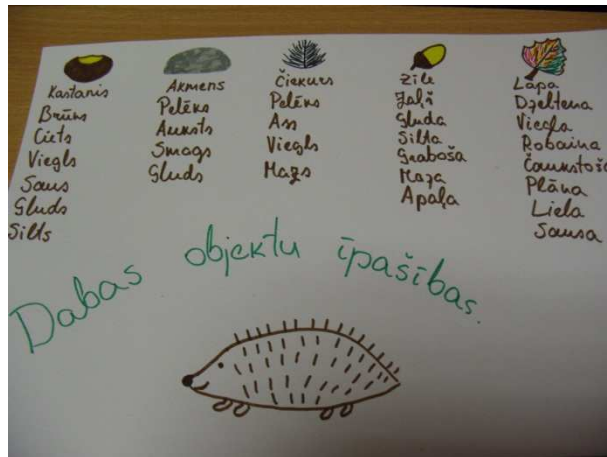 Kastanis
Brūns
Ciets
Viegls
Sauss
Gluds
Silts
Akmens
Pelēks
Auksts
Smags
Gluds
Čiekurs
Pelēks
Ass
Viegls
Mazs
Zīle
Zaļš
Gluda
Silta
Graboša
Maza
Apaļa
Lapa
Dzeltena
Viegla
Robaina
Čaukstoša
Plāna
Liela
Sausa
Dabas objektu īpašības.